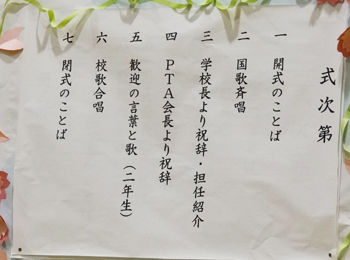 式次第
一 開式のことば
二 国歌斉唱
三 学校長より祝辞・担任紹介
四 PTA会長より祝辞
五 歓迎の言葉と歌(二年生)
六 校歌合唱
七 閉式のことば